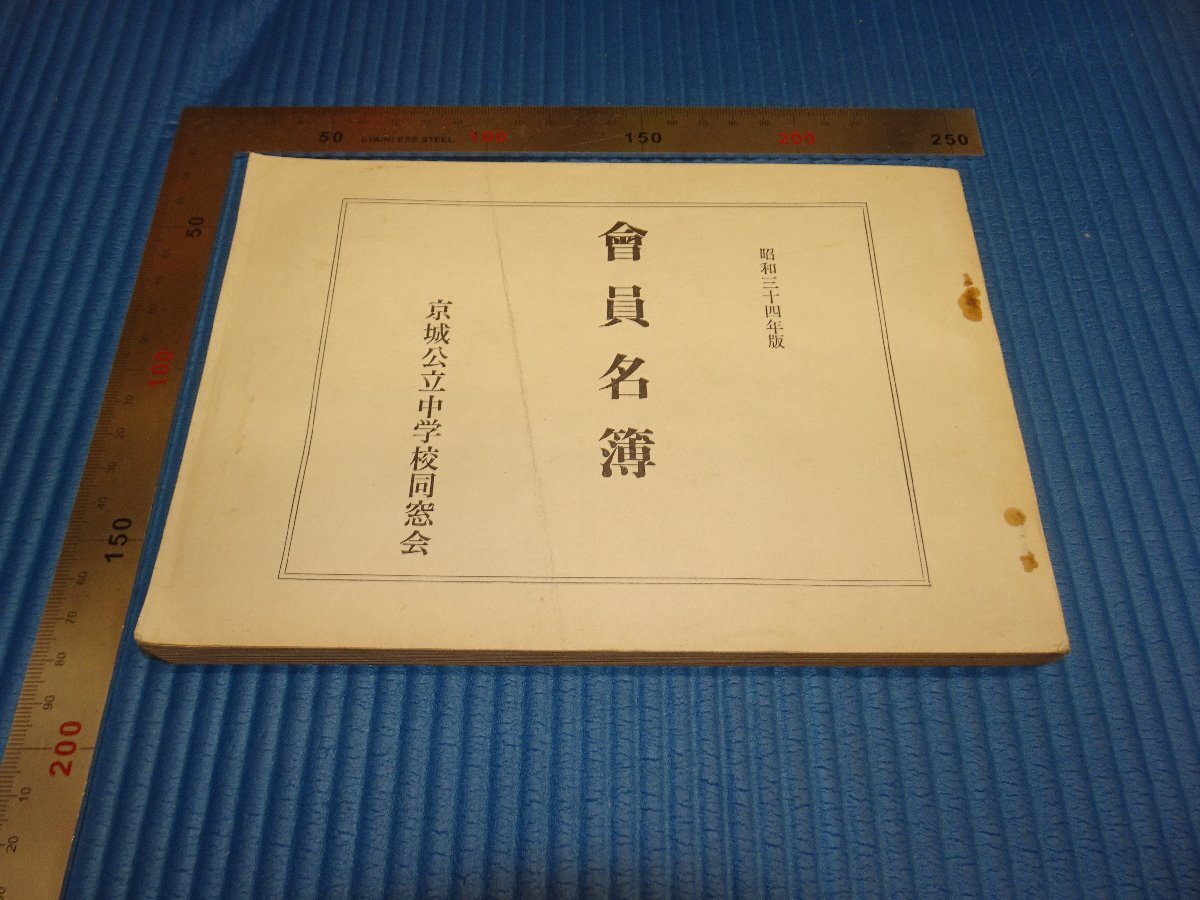 昭和三十四年版
會員名簿
京城公立中学校同窓会
50 STAINLESS STEEL 100 150 200 250
50
100
150
200